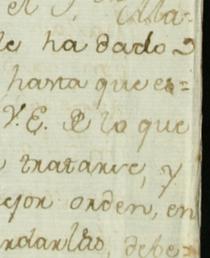 el S. Illa-
le ha dado
hasta que es=
V.E. lo que
tratarse, y
ejor orden, en
ndarlas, debe=